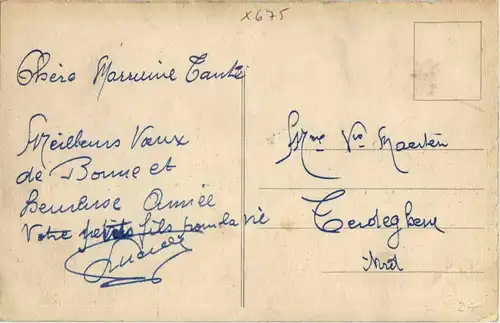 x675
Chère Marraine Tante
Meilleurs Vœux
de Bonne et
heureuse Année
Votre petits fils pour la vie
Mme Vve Maerten
Terdeghem
Nord